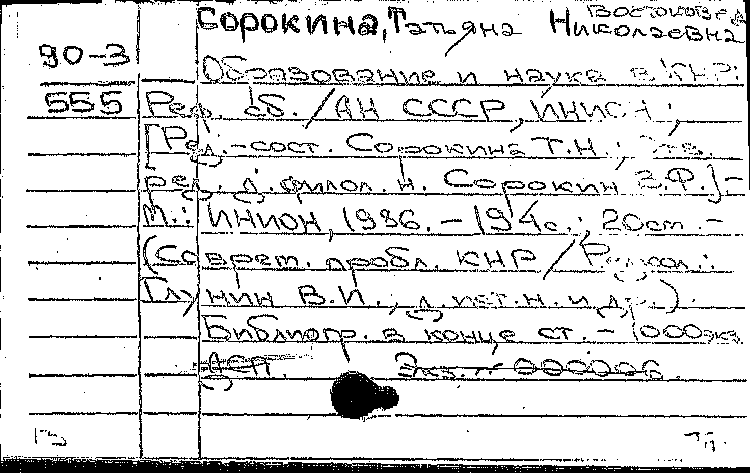 Востоковед
Сорокина, Татьяна Николаевна
90-3
Образование и наука в КНР:
555 Реф. сб. / АН СССР, ИНИОН;
[Ред.-сост. Сорокина Т.Н.; Отв.
ред. д. филол. н. Сорокин В.Ф.] –
М.: ИНИОН, 1986. – 194с.; 20см. –
(Соврем. пробл. КНР / Редкол.:
Глунин В.И., д. ист. н. и др.).
Библиогр. в конце ст. – 1000экз.
ДСП. Экз. № 000006.